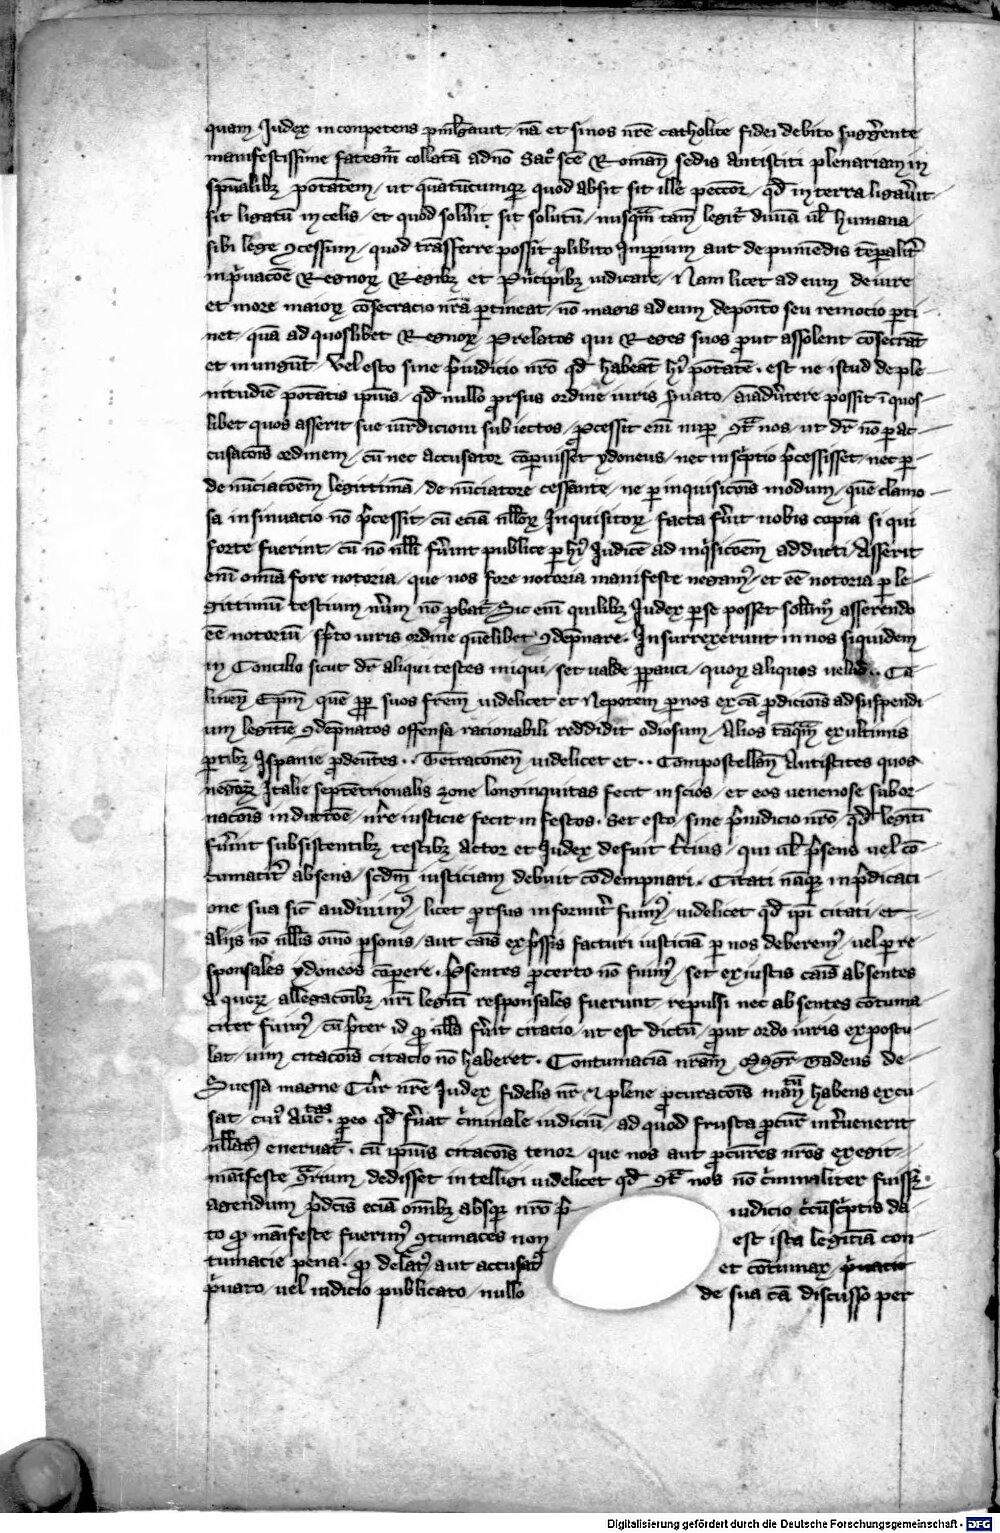 quam Judex inconpetens pml̅gauit / nā et si nos nr̄e catholice fidei debito sugg̅ente
manifestissime fateam̄ collatā a dn̄o Sac̄ sc̄e Roman̄ sedis Antistiti plenariam in
sp̄ualibȝ potatem / ut quātucumqꝫ quod absit sit ille peccor̄ / qd̄ in terra ligau̅it
sit ligatū in celis / et quod solu̅it sit solutū / nusqm̄ tam̄ legit̄ diuīa ul̄ humana
sibi lege ꝯcessum / quod trāsferre possit ꝓ libito Imperium aut de puniēdis tēꝑalit̅
in p̅uacōe Regnoꝝ Regibȝ et P̅ncipibȝ iudicare / Nam licet ad eum de iure
et more maioꝝ cōsecracio nr̄a ꝑtineat / nō magis ad eum depoīto seu remocio ꝑti
net / quā ad quoslibet Regnoꝝ Prelatos qui Reges suos ꝓut assolent cōsecrāt
et inungūt / Vel esto sine p̅iudicio nr̄o qd̄ habeat hi̅ potatē . est ne istud de ple
nitudīe potatis ipius / qd̄ nullo ꝓrsus ordine iuris s̅uato / aīadu̅tere possit ī quos
libet quos asserit sue iur̄dicioni subiectos / ꝓcessit em̄ nuꝑ ꝯt̄ nos / ut dr̄ nō ꝑ ac
cusacōis ordinem / cū nec accusator cōꝑuisset ydoneus / nec insc̅ptio p̅cessisset / nec ꝑ
denūciacōem legittimā / denūciatore cessante / ne ꝑ inquisicōis modum / quē clamo
sa insinuacio nō p̅cessit / cū eciā nl̄loꝝ Inquisitoꝝ facta fu̅it nobis copia si qui
forte fuerint / cū nō nl̄li fu̅int publice ꝑ hi̅ Judicē ad inq̅sicōem adducti / Asserit
em̄ om̄ia fore notoria / que nos fore notoria manifeste negamꝯ / et eē notoria ꝑ le
gittimū testium nu̅m nō ꝓbat̄ . Sic em̄ quilibȝ Judex ꝑ se posset solūmo asserendo
eē notoriū / sp̅to iuris ordine quēlibet ꝯdēpnare . Insurrexerunt in nos siquidem
in Concilio sicut dr̄ aliqui testes iniqui / set ualde ꝑpauci / quoꝝ aliquos uelud .. Ca
linen̄ Ep̄m quē ꝓp̄ suos fr̄em uidelicet et Nepotem ꝑ nos ex cā ꝓdicōis ad suspendi
um legitīe ꝯdēpnatos offensa racionabili reddidit odiosum / Alios tāqm̄ ex ultimis
ꝑtibȝ Ispanie ꝓdeūtes .. Terraconen̄ uidelicet et .. Compostellan̄ Antistites quos
negoꝝ Italie septētrionalis zone longinquitas fecit inscios / et eos uenenose subor
nacōis inductōe / nr̄e iusticie fecit infestos . Set esto / sine p̅iudicio nr̄o / qd̄ legitī
fu̅int subsistentibȝ testibȝ Actor et Judex defuit t̅cius / qui ul̄ p̅sens uel cō
tumacit̅ absens / scd̄m iusticiam debuit cōdempnari . Citati nāqꝫ in p̅dicaci
one sua sic̄ audiuimꝯ / licet ꝓrsus informit̅ fuimꝯ / uidelicet qd̄ ip̄i citati / et
alijs nō nl̄lis om̄o ꝑsonis / aut cāis exp̅ssis facturi iusticiā ꝑ nos deberemꝯ / uel ꝑ re
sponsales ydoneos cōꝑere . P̅sentes ꝓ certo nō fuimꝯ / set ex iustis cāis absentes
A queꝝ allegacōibȝ nr̄i legitī responsales fuerunt repulsi nec absentes cōtuma
citer fuimꝯ / cū p̅ter id ꝓ nl̄la fu̅it citacio / ut est dictū / ꝓut ordo iuris expostu
lat / uim citacōis citacio nō haberet . Contumaciā nr̄am Mgr̄ Tadeus de
Suessa magne Cur̄ nr̄e Judex fidelis nr̄ & plene ꝓcuracōis man̄ habens excu
sat / cuiꝯ Auct̄as . ꝓeo qd̄ fu̅at c̅minale iudiciū / ad quod frustra ꝓcur̄ int̅uenerit
nl̄latꝯ eneruat̄ . cū ipius citacōis tenor / que nos aut ꝓcur̄es nr̄os exegit
manifeste dedisset intelligi uidelicet qd̄ ꝯt̄ nos nō c̅minaliter fuisse
agendum p̅dcīs eciā om̄ibȝ absqꝫ nr̄o p̅ iudicio c̅cūsc̅ptis da
to ꝓ manifeste fuerimꝯ ꝯtumaces non est ista legitīa con
tumacie pena . ꝓ delatꝯ aut accusatꝯ et cōtumax
p̅uato / uel iudicio publicato / nullo de sua cā discusso per
Digitalisierung gefördert durch die Deutsche Forschungsgemeinschaft - DFG